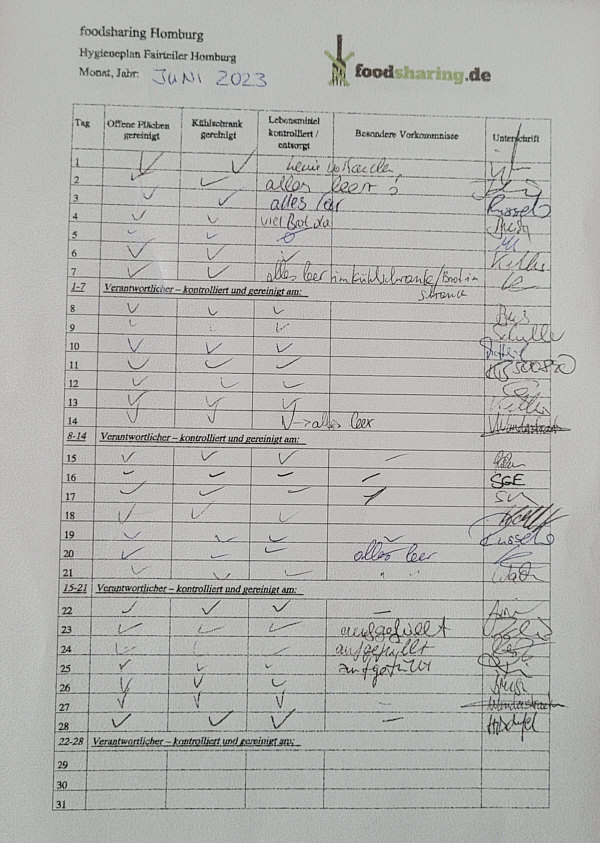 foodsharing Homburg
Hygieneplan Fairteiler Homburg
Monat, Jahr: JUNI 2023
foodsharing.de
Tag Offene Flächen gereinigt Kühlschrank gereinigt Lebensmittel kontrolliert / entsorgt Besondere Vorkommnisse Unterschrift
1 ✓ ✓ keine vorhanden
2 ✓ ✓ alles leer!
3 ✓ ✓ alles leer
4 ✓ ✓ viel Brot da
5 ✓ ✓
6 ✓ ✓ ✓
7 ✓ ✓ alles leer im Kühlschrank/Brot im
schrank
1-7 Verantwortlicher – kontrolliert und gereinigt am:
8 ✓ ✓ ✓
9 ✓ ✓ ✓
10 ✓ ✓ ✓
11 ✓ ✓ ✓
12 ✓ ✓ ✓
13 ✓ ✓ ✓
14 ✓ ✓ ✓ -> alles leer
8-14 Verantwortlicher – kontrolliert und gereinigt am:
15 ✓ ✓ ✓ –
16 ✓ ✓ ✓ – SGE
17 ✓ ✓ –
18 ✓ ✓ ✓
19 ✓ ✓ ✓
20 ✓ ✓ ✓ alles leer
21 ✓ ✓ ✓ " "
15-21 Verantwortlicher – kontrolliert und gereinigt am:
22 ✓ ✓ ✓ –
23 ✓ ✓ ✓ aufgefüllt
24 ✓ ✓ ✓ aufgefüllt
25 ✓ ✓ ✓ aufgefüllt
26 ✓ ✓ ✓
27 ✓ ✓ ✓ –
28 ✓ ✓ ✓ –
22-28 Verantwortlicher – kontrolliert und gereinigt am:
29
30
31